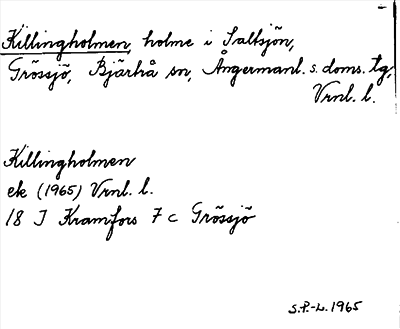 Killingholmen, holme i Saltsjön,
Grössjö, Bjärtrå sn, Ångermanl. s. doms. tg,
Vrnl. l.
Killingholmen
ek (1965) Vrnl. l.
18 I Kramfors 7 c Grössjö
S.P.-L. 1965